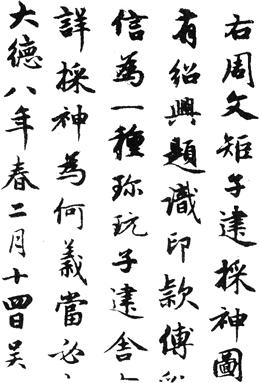 右周文矩子建採神圖
有紹興題識印款傅
信為一種珍玩子建舍
詳採神為何義當必
大德八年春二月十四日吴